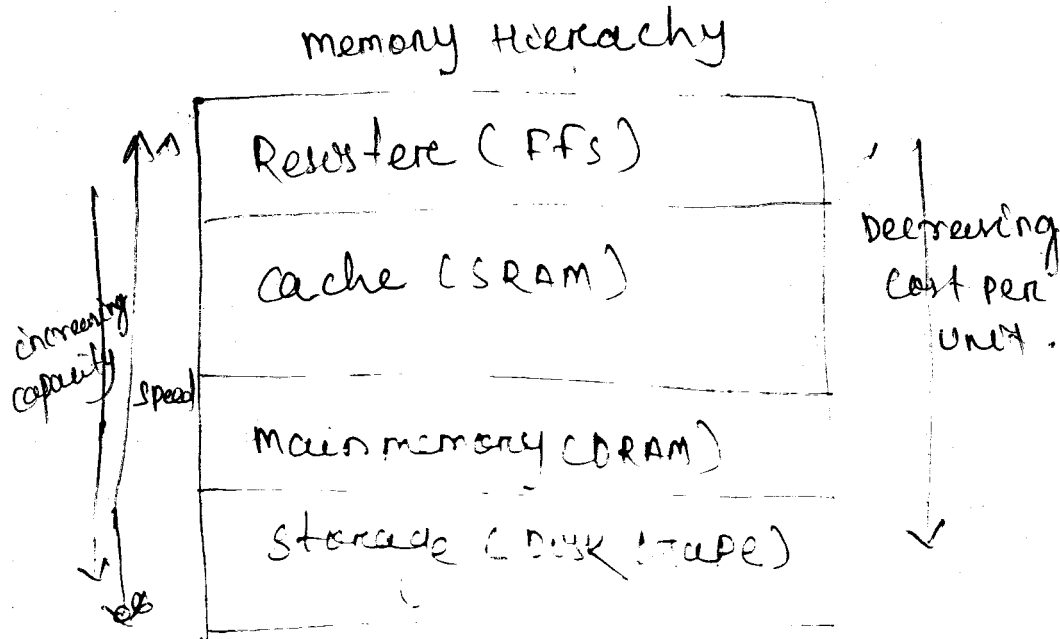 memory Hierachy
Resistere (FFs)
cache (SRAM)
main memory (DRAM)
Storage (DISK / TAPE)
increasing
capacity
speed
Decreasing
Cost per
Unit.